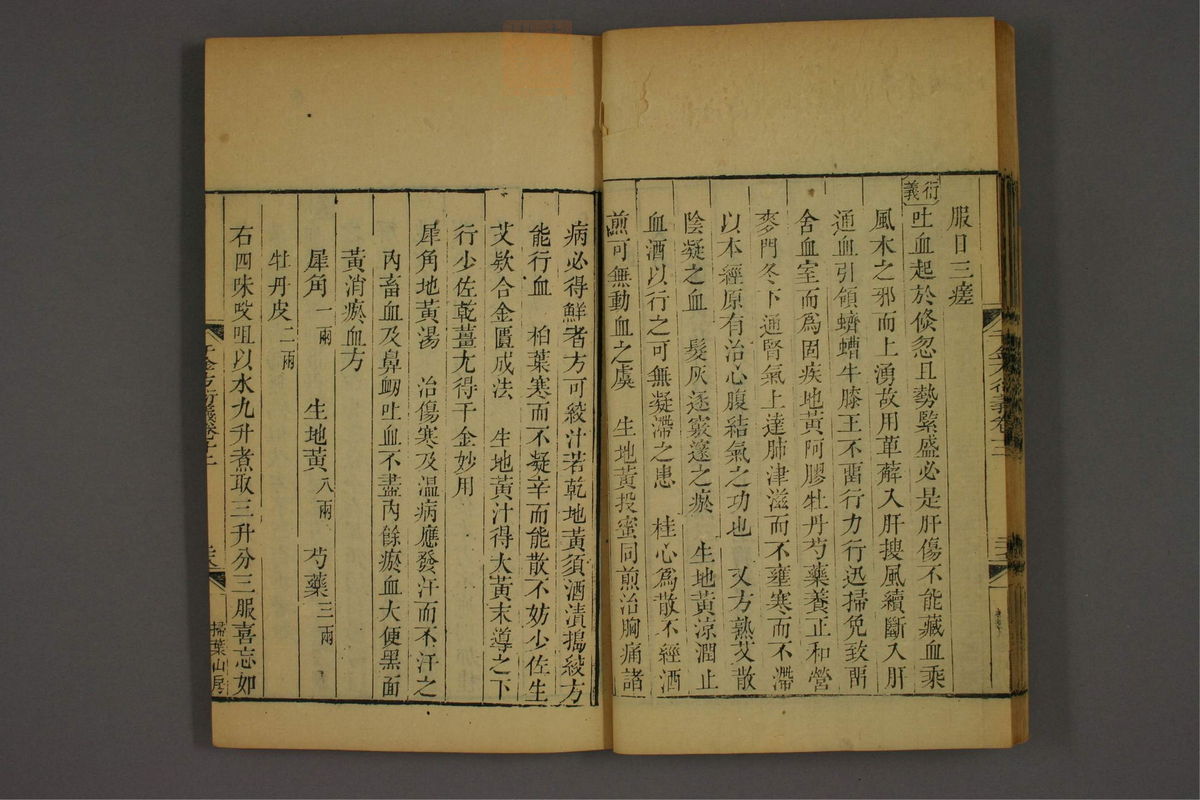 服日三瘥
衍義
吐血起於倐忽且勢緊盛必是肝傷不能藏血乘
風木之邪而上湧故用萆薢入肝搜風續斷入肝
通血引領蠐螬牛膝王不留行力行迅掃免致畱
舍血室而爲固疾地黃阿膠牡丹芍藥養正和營
麥門冬下通腎氣上達肺津滋而不壅寒而不滯
以本經原有治心腹結氣之功也 又方熟艾散
陰凝之血 髮灰逐竅邃之瘀 生地黃涼潤止
血酒以行之可無凝滯之患 桂心爲散不經酒
煎可無動血之虞 生地黃投蜜同煎治胸痛諸
病必得鮮者方可綾汁若乾地黃須酒漬搗綾方
能行血 柏葉寒而不凝辛而能散不妨少佐生
艾欵合金匱成法 生地黃汁得大黃末導之下
行少佐乾薑尢得千金妙用
犀角地黃湯 治傷寒及温病應發汗而不汗之
內畜血及鼻衂吐血不盡內餘瘀血大便黑面
黃消瘀血方
犀角一兩 生地黃八兩 芍藥三兩
牡丹皮二兩
右四味㕮咀以水九升煮取三升分三服喜忘如
千金方衍義卷十二
掃葉山房